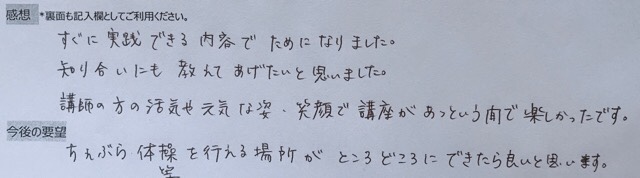 感想 *裏面も記入欄としてご利用ください。
すぐに実践できる内容でためになりました。
知り合いにも教えてあげたいと思いました。
講師の方の活気や元気な姿、笑顔で講座があっという間で楽しかったです。
今後の要望
ちんぶら体操を行える場所がところどころにできたら良いと思います。